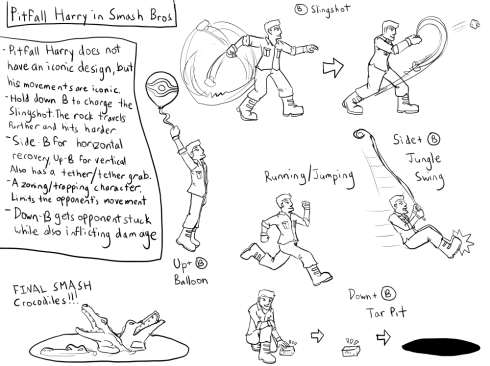 Pitfall Harry in Smash Bros
- Pitfall Harry does not
have an iconic design, but
his movements are iconic.
- Hold down B to charge the
Slingshot. The rock travels
further and hits harder
- Side-B for horizontal
recovery, Up-B for vertical
Also has a tether/tether grab.
- A zoning/trapping character.
Limits the opponent's movement
- Down-B gets opponent stuck
while also inflicting damage
B Slingshot
Side+ B
Jungle
Swing
Running/Jumping
Up+ B
Balloon
FINAL SMASH
Crocodiles!!!
Down+ B
Tar Pit